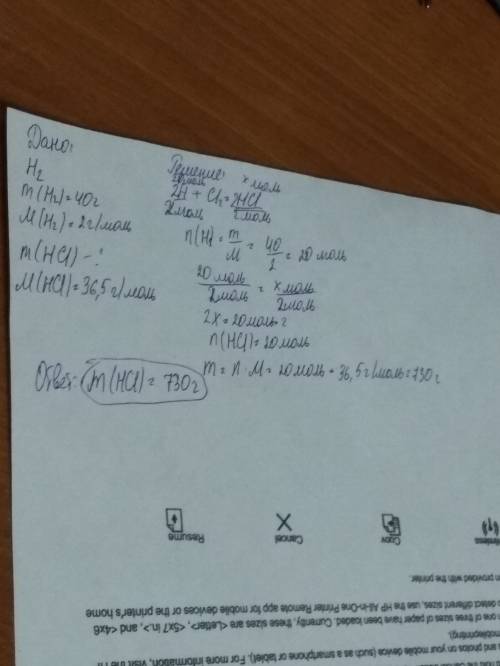 Дано:
H₂
m(H₂)=40г
M(H₂)=2г/моль
m(HCl)-?
M(HCl)=36,5г/моль
Решение:
20моль x моль
2H + Cl₂ = 2HCl
2моль 2моль
n(H) = m/M = 40/2 = 20 моль
20 моль/2моль = x моль/2моль
2x = 20моль · 2
n(HCl) = 20моль
m = n · M = 20моль · 36,5г/моль=730г
Ответ: m(HCl) = 730г
Resume
Cancel
Copy
Wireless
provided with the printer.
detect different sizes, use the HP All-in-One Printer Remote app for mobile devices or the printer's home
one of three sizes of paper have been loaded. Currently, these sizes are <Letter>, <5x7 in>, and <4x6
and photos on your mobile device (such as a smartphone or tablet). For more information, visit the